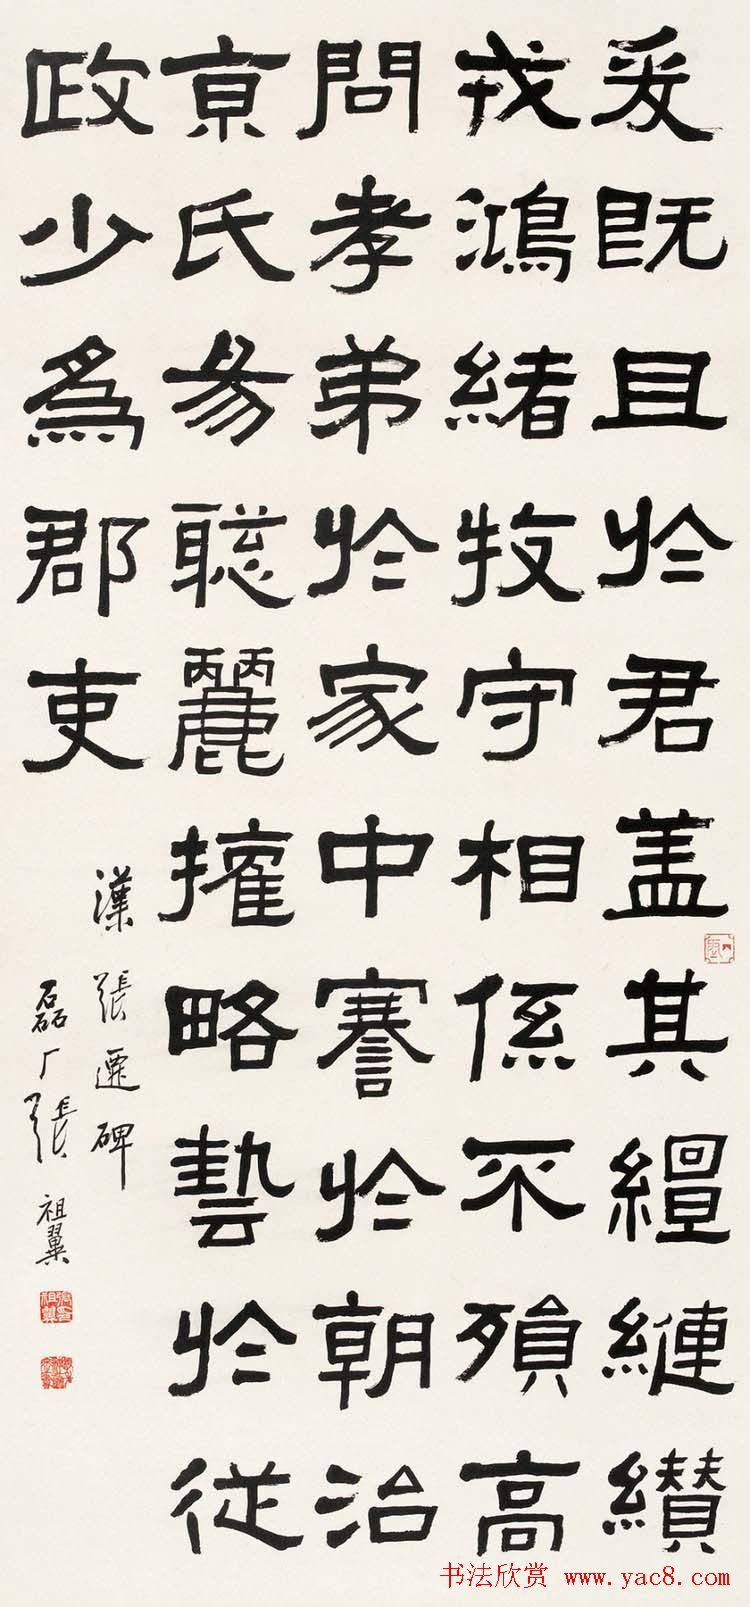 爰既且於君盖其繵縺纉
戎鴻緒牧守相係不殞高
問孝弟於家中謇於朝治
京氏易聦麗攉略藝於従
政少為郡吏
漢張遷碑
磊厂張祖翼
书法欣赏 www.yac8.com